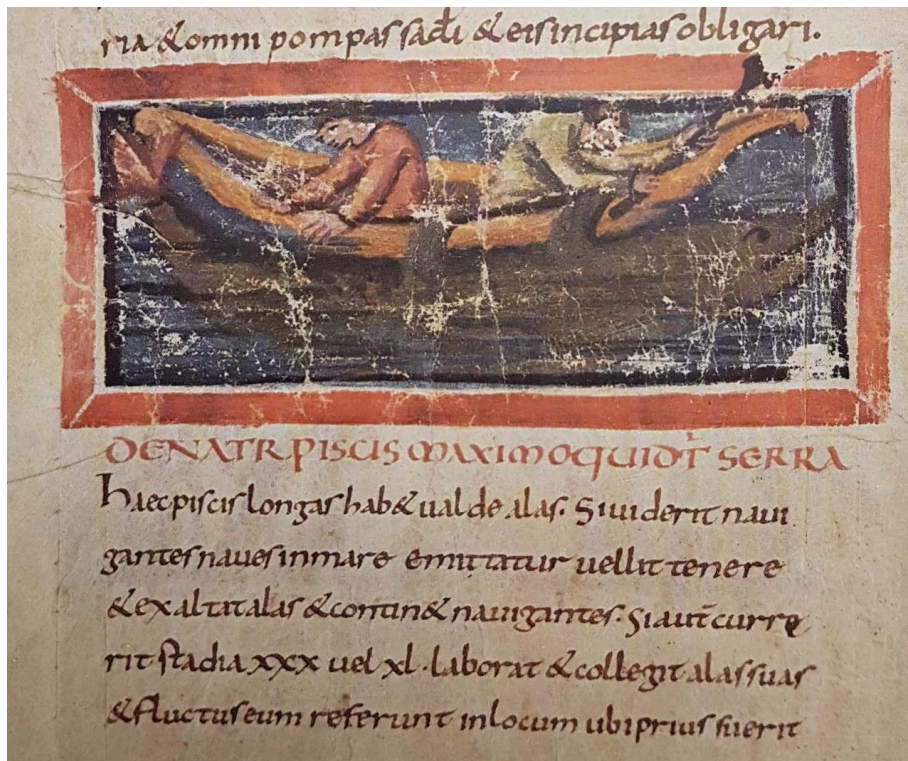 ria & omni pompas sadi & eis incipias obligari.
DE NATR PISCIS MAXIMO QUI DT̄ SERRA
Haec piscis longas hab& ualde alas. Si uiderit naui
gantes naues in mare emittatur uellit tenere
& exaltat alas & contin& nauigantes. Si aut̄ curre
rit stadia xxx uel xl. laborat & collegit alas suas
& fluctus eum referunt in locum ubi prius fuerit